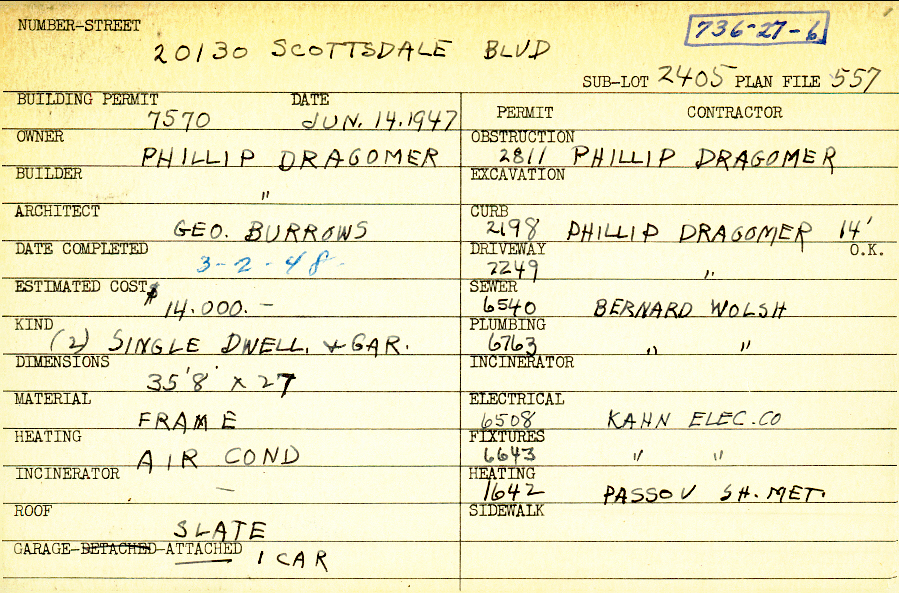 NUMBER-STREET
20130 SCOTTSDALE BLVD
736-27-6
SUB-LOT 2405 PLAN FILE 557
BUILDING PERMIT DATE
7570 JUN. 14. 1947
OWNER
PHILLIP DRAGOMER
BUILDER
"
ARCHITECT
GEO. BURROWS
DATE COMPLETED
3-2-48-
ESTIMATED COST
$14.000.-
KIND
(2) SINGLE DWELL. & GAR.
DIMENSIONS
35'8" x 27
MATERIAL
FRAME
HEATING
AIR COND
INCINERATOR
-
ROOF
SLATE
GARAGE-DETACHED-ATTACHED
1 CAR
PERMIT CONTRACTOR
OBSTRUCTION
2811 PHILLIP DRAGOMER
EXCAVATION
CURB
2198 PHILLIP DRAGOMER 14'
DRIVEWAY O.K.
2249 "
SEWER
6540 BERNARD WOLSH
PLUMBING
6763 " "
INCINERATOR
ELECTRICAL
6508 KAHN ELEC. CO
FIXTURES
6643 " "
HEATING
1642 PASSOV SH. MET.
SIDEWALK